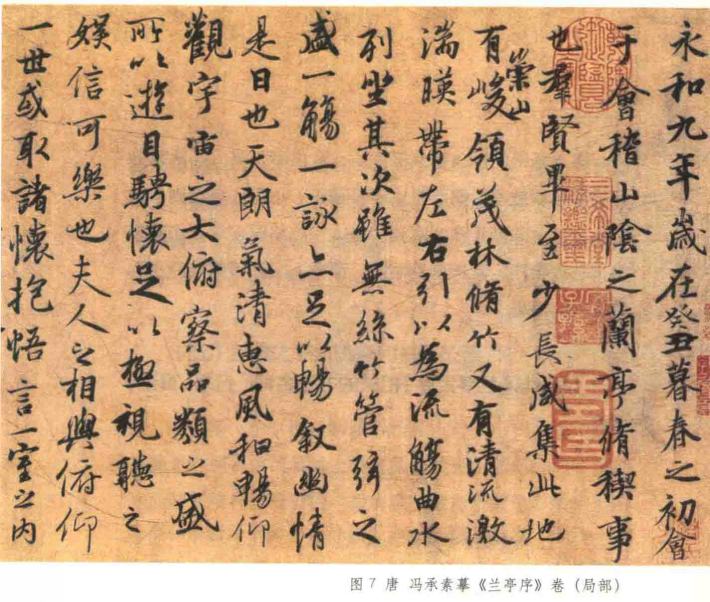 永和九年歲在癸丑暮春之初會
于會稽山陰之蘭亭脩稧事
也羣賢畢至少長咸集此地
有崇山峻領茂林脩竹又有清流激
湍暎帶左右引以為流觴曲水
列坐其次雖無絲竹管弦之
盛一觴一詠亦足以暢叙幽情
是日也天朗氣清惠風和暢仰
觀宇宙之大俯察品類之盛
所以遊目騁懷足以極視聽之
娛信可樂也夫人之相與俯仰
一世或取諸懷抱悟言一室之內
图7 唐 冯承素摹《兰亭序》卷（局部）